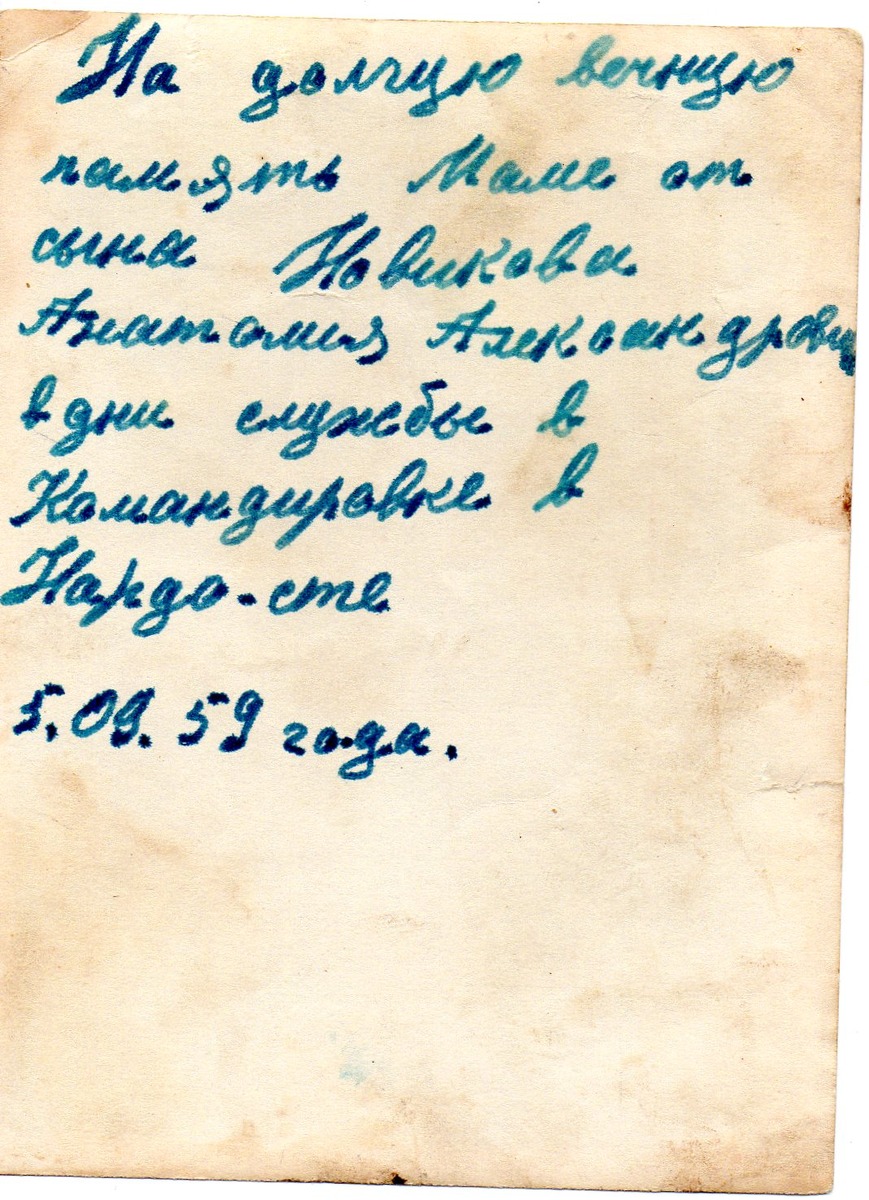 На долгую вечную
память Маме от
сына Новикова
Анатолия Александрович
в дни службы в
Командировке в
5.09.59 года.